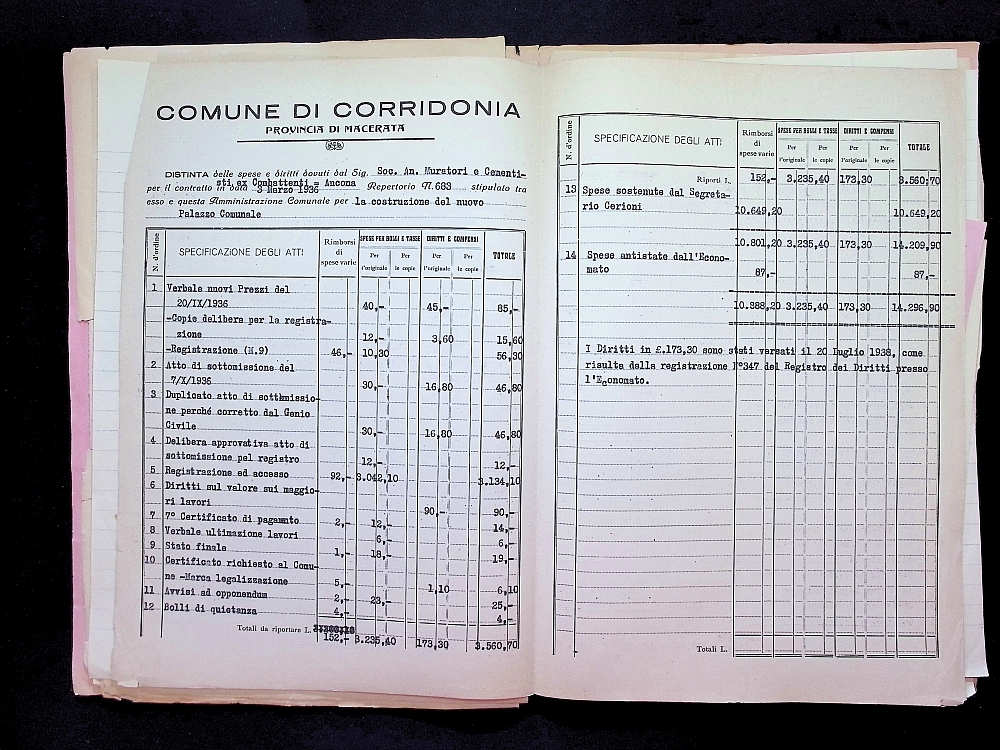 COMUNE DI CORRIDONIA
PROVINCIA DI MACERATA
DISTINTA delle spese e diritti dovuti dal Sig. Soc. An. Muratori e Cementi-
sti ex Combattenti = Ancona
per il contratto in data 3 Marzo 1936 Repertorio N. 683 stipulato tra
esso e questa Amministrazione Comunale per la costruzione del nuovo
Palazzo Comunale
N. d'ordine SPECIFICAZIONE DEGLI ATTI Rimborsi di spese varie SPESE PER BOLLI E TASSE Per l'originale Per le copie DIRITTI E COMPENSI Per l'originale Per le copie TOTALE
1 Verbale nuovi Prezzi del
20/IX/1936 40,- 45,- 85,-
-Copie delibera per la registra-
zione 12,- 3,60 15,60
-Registrazione (N.9) 46,- 10,30 56,30
2 Atto di sottomissione del
7/X/1936 30,- 16,80 46,80
3 Duplicato atto di sottomissio-
ne perché corretto dal Genio
Civile 30,- 16,80 46,80
4 Delibera approvativa atto di
sottomissione pel registro 12,- 12,-
5 Registrazione ed accesso 92,- 3.042,10 3.134,10
6 Diritti sul valore sui maggio-
ri lavori 90,- 90,-
7 7° Certificato di pagamnto 2,- 12,- 14,-
8 Verbale ultimazione lavori 6,- 6,-
9 Stato finale 1,- 18,- 19,-
10 Certificato richiesto al Comu-
ne -Marca legalizzazione 5,- 1,10 6,10
11 Avvisi ad opponendum 2,- 23,- 25,-
12 Bolli di quietanza 4,- 4,-
Totali da riportare L.
152,- 3.235,40 173,30 3.560,70
N. d'ordine SPECIFICAZIONE DEGLI ATTI Rimborsi di spese varie SPESE PER BOLLI E TASSE Per l'originale Per le copie DIRITTI E COMPENSI Per l'originale Per le copie TOTALE
Riporti L. 152,- 3.235,40 173,30 3.560,70
13 Spese sostenute dal Segreta-
rio Cerioni 10.649,20 10.649,20
10.801,20 3.235,40 173,30 14.209,90
14 Spese antistate dall'Econo-
mato 87,- 87,-
10.888,20 3.235,40 173,30 14.296,90
I Diritti in £.173,30 sono stati versati il 20 Luglio 1938, come
risulta della registrazione N°347 del Registro dei Diritti presso
l'Economato.
Totali L.